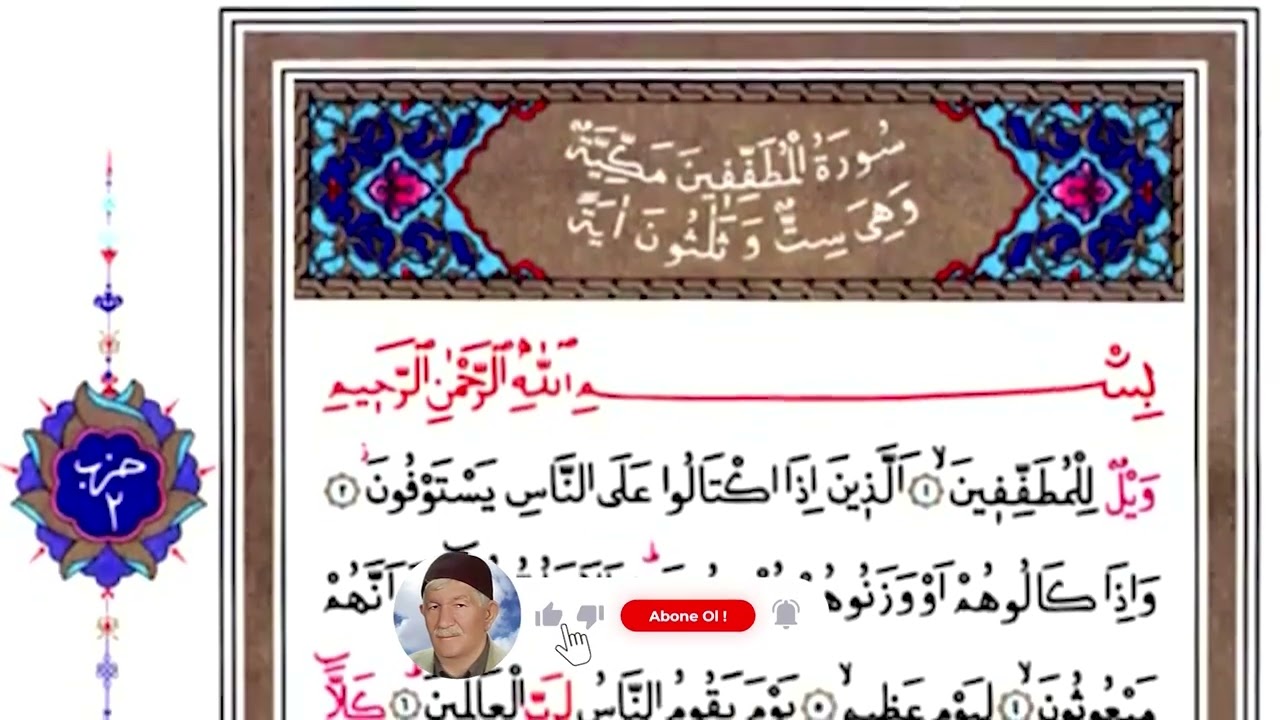 سُورَةُ الْمُطَفِّفِينَ مَكِّيَّةٌ
وَهِىَ سِتٌّ وَ ثَلٰثُونَ اٰيَةً
بِسْمِ اللّٰهِ الرَّحْمٰنِ الرَّحِيمِ
وَيْلٌ لِلْمُطَفِّفِينَۙ ١ اَلَّذِينَ اِذَا اكْتَالُوا عَلَى النَّاسِ يَسْتَوْفُونَۘ ٢
حزب
٢
وَاِذَا كَالُوهُمْ اَوْ وَزَنُوهُمْ اَنَّهُمْ
Abone Ol !
مَبْعُوثُونَۙ ٤ لِيَوْمٍ عَظِيمٍۙ ٥ يَوْمَ يَقُومُ النَّاسُ لِرَبِّ الْعَالَمِينَۜ ٦ كَلَّا